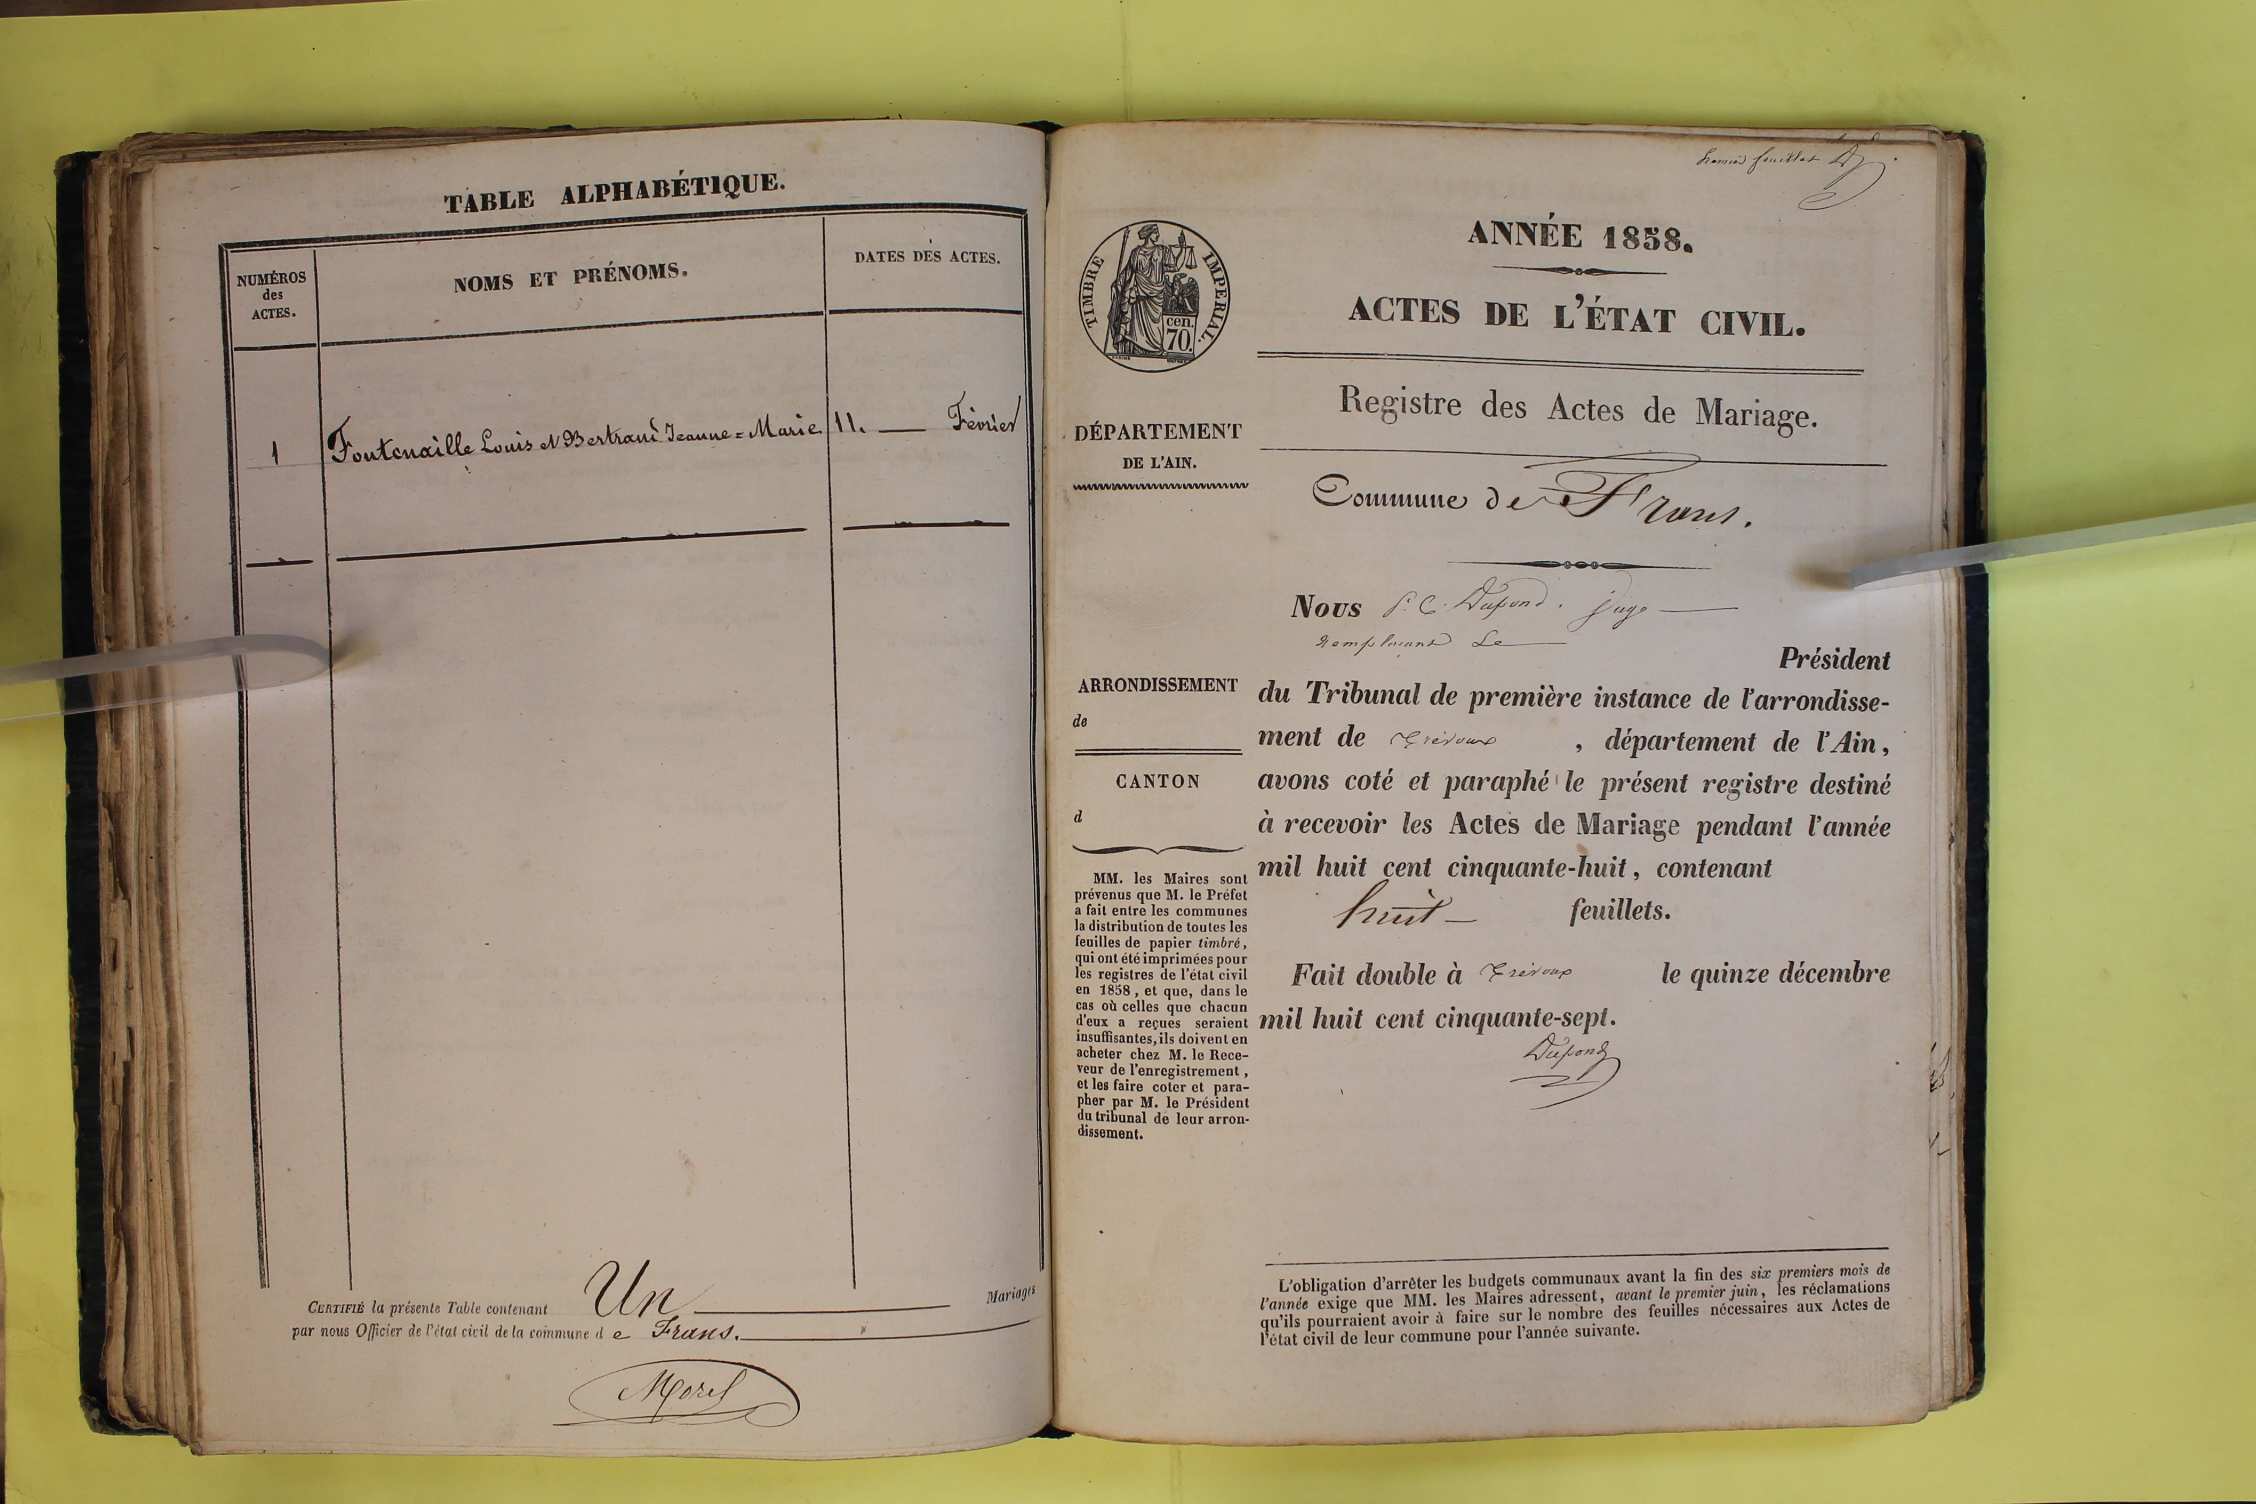 TABLE ALPHABÉTIQUE.
NUMÉROS
des
ACTES.
NOMS ET PRÉNOMS.
DATES DES ACTES.
1 Fontenaille Louis et Bertrand Jeanne=Marie 11. — Février
CERTIFIÉ la présente Table contenant Un Mariages
par nous Officier de l'état civil de la commune d e Frans.
Morel
premier feuillet
TIMBRE IMPERIAL.
cen.
70.
DÉPARTEMENT
DE L'AIN.
ARRONDISSEMENT
de
CANTON
d
MM. les Maires sont
prévenus que M. le Préfet
a fait entre les communes
la distribution de toutes les
feuilles de papier timbré,
qui ont été imprimées pour
les registres de l'état civil
en 1858, et que, dans le
cas où celles que chacun
d'eux a reçues seraient
insuffisantes, ils doivent en
acheter chez M. le Rece-
veur de l'enregistrement,
et les faire coter et para-
pher par M. le Président
du tribunal de leur arron-
dissement.
ANNÉE 1858.
ACTES DE L'ÉTAT CIVIL.
Registre des Actes de Mariage.
Commune de Frans.
Nous P. C. Dupond. juge
remplaçant Le
Président
du Tribunal de première instance de l'arrondisse-
ment de Trévoux, département de l'Ain,
avons coté et paraphé le présent registre destiné
à recevoir les Actes de Mariage pendant l'année
mil huit cent cinquante-huit, contenant
huit feuillets.
Fait double à Trévoux le quinze décembre
mil huit cent cinquante-sept.
Dupond
L'obligation d'arrêter les budgets communaux avant la fin des six premiers mois de
l'année exige que MM. les Maires adressent, avant le premier juin, les réclamations
qu'ils pourraient avoir à faire sur le nombre des feuilles nécessaires aux Actes de
l'état civil de leur commune pour l'année suivante.